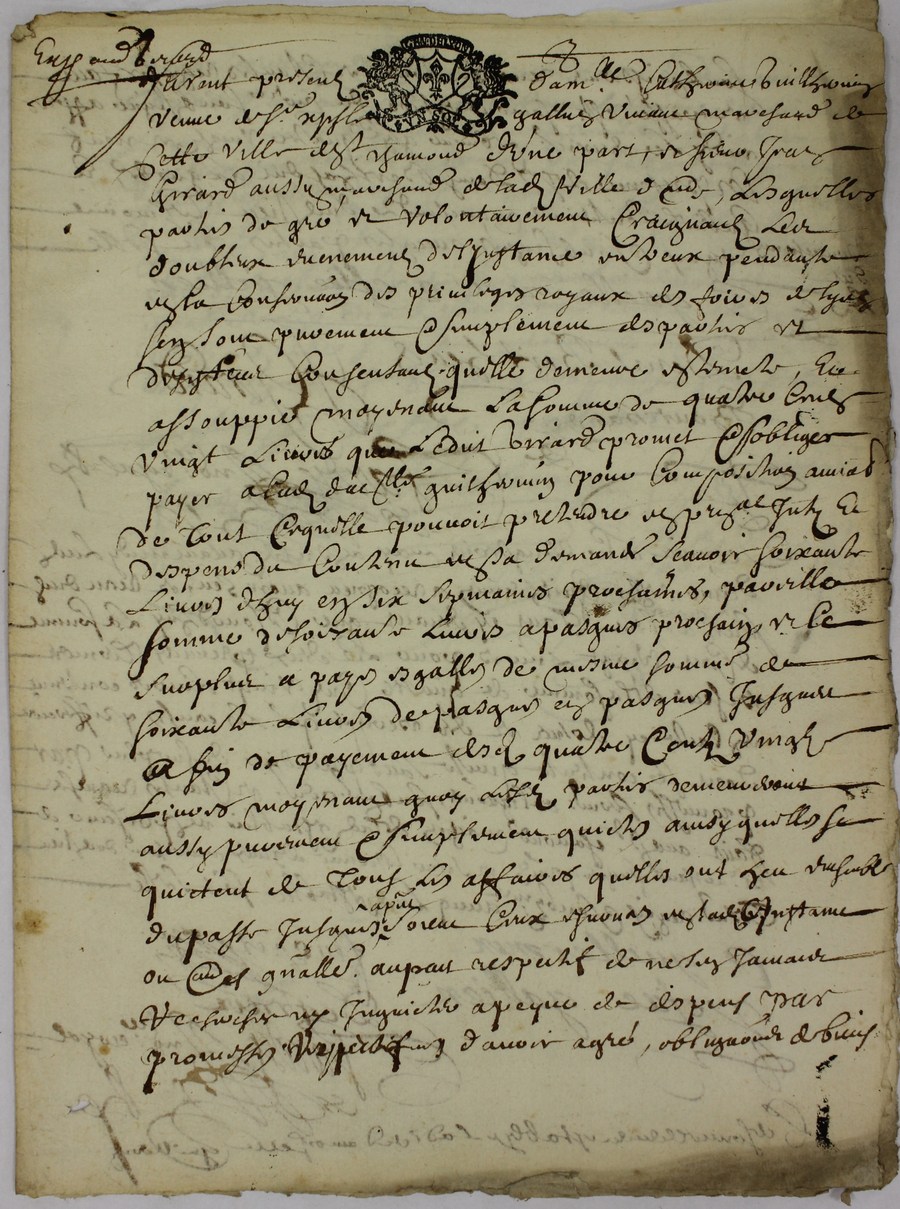 furent presens dam.lle Catherine Guilhermin
veuve de Sr gallien vivant marchand de
Cette ville de St chamond d'une part, et sieur Jean
Girard aussy marchand de lad. ville d'autre, Lesquelles
partis de gré et volontairement Craignant Les
doubteux evenement de l'Instance entr'eux pendante
en la Conservation des privileges royaux des foires de lyon
sen sont purement & simplement despartis et
Consentant quelle demeure esteincte, Et
assouppie moyenant La somme de quatre Cents
vingt Livres que Ledit Girard promet & s'obliger
payer a lad. dae.lle guilhermin pour Composition amiab
de tout Cequelle pouvoit pretendre en pr.al Int. Et
despens du Contenu en sa demande Scavoir soixante
Livres d'huy en six sepmaines prochaines, pareille
somme de soixante Livres a pasques prochain, et le
surplus a payes esgalles de mesme somme de
soixante Livres de pasques en pasques Jusques
a fin de payement desd. quatre Cents vingt
Livres moyenant quoy Lesd. partis demeureront
aussy purement & simplement quictes ainsy quelles se
quictent de tous les affaires quelles ont heu ensemble
du passe Jusques apnt soient Ceux esnoncés en lad. Instance
ou aupart respectif de ne sen Jamais
rechercher ny Inquieter a peyne de despens par
promesses respectifves d'avoir agré, obligations de biens